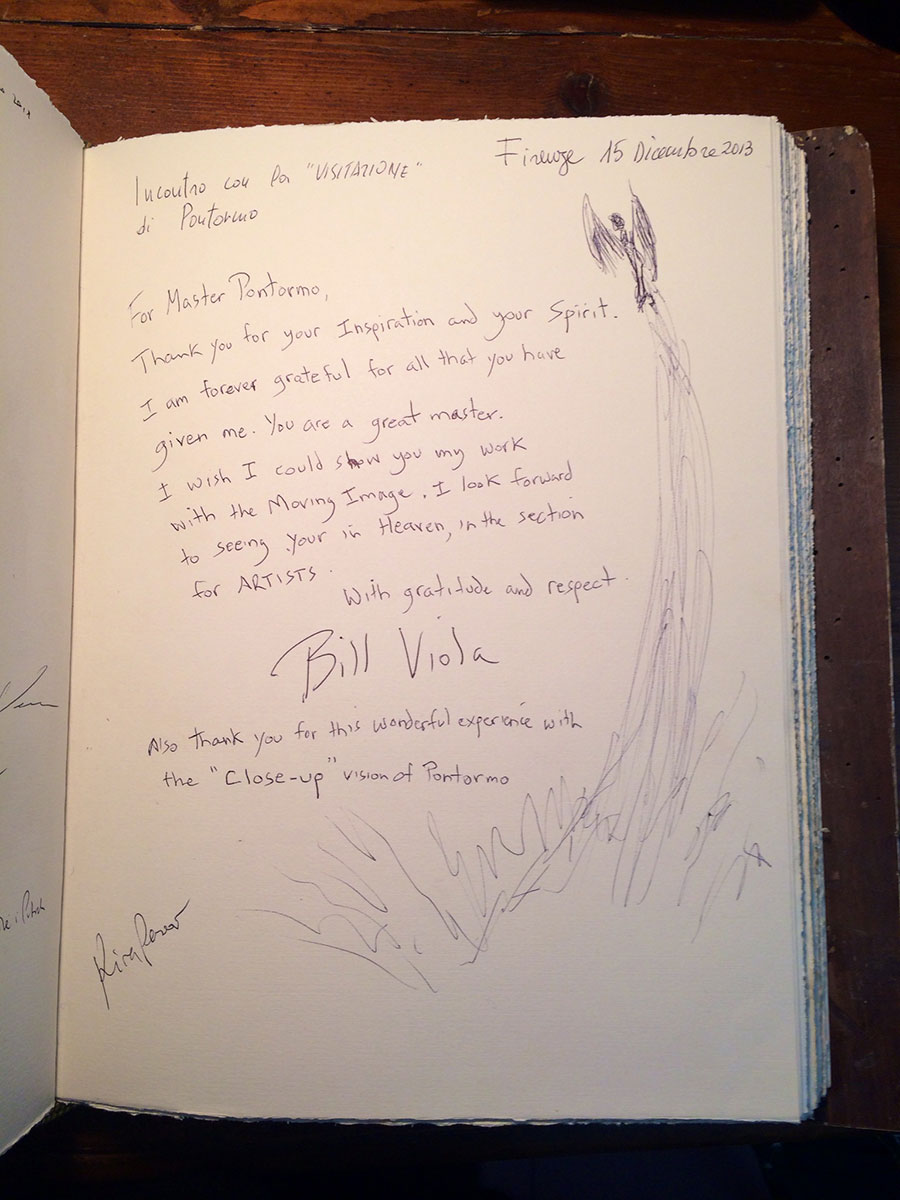 Incontro con la "VISITAZIONE"
di Pontormo
Firenze 15 Dicembre 2013
For Master Pontormo,
Thank you for your Inspiration and your Spirit.
I am forever grateful for all that you have
given me. You are a great master.
I wish I could show you my work
with the Moving Image. I look forward
to seeing your in Heaven, in the section
for ARTISTS.
With gratitude and respect.
Bill Viola
Also thank you for this wonderful experience with
the "Close-up" vision of Pontormo
Kira Perov